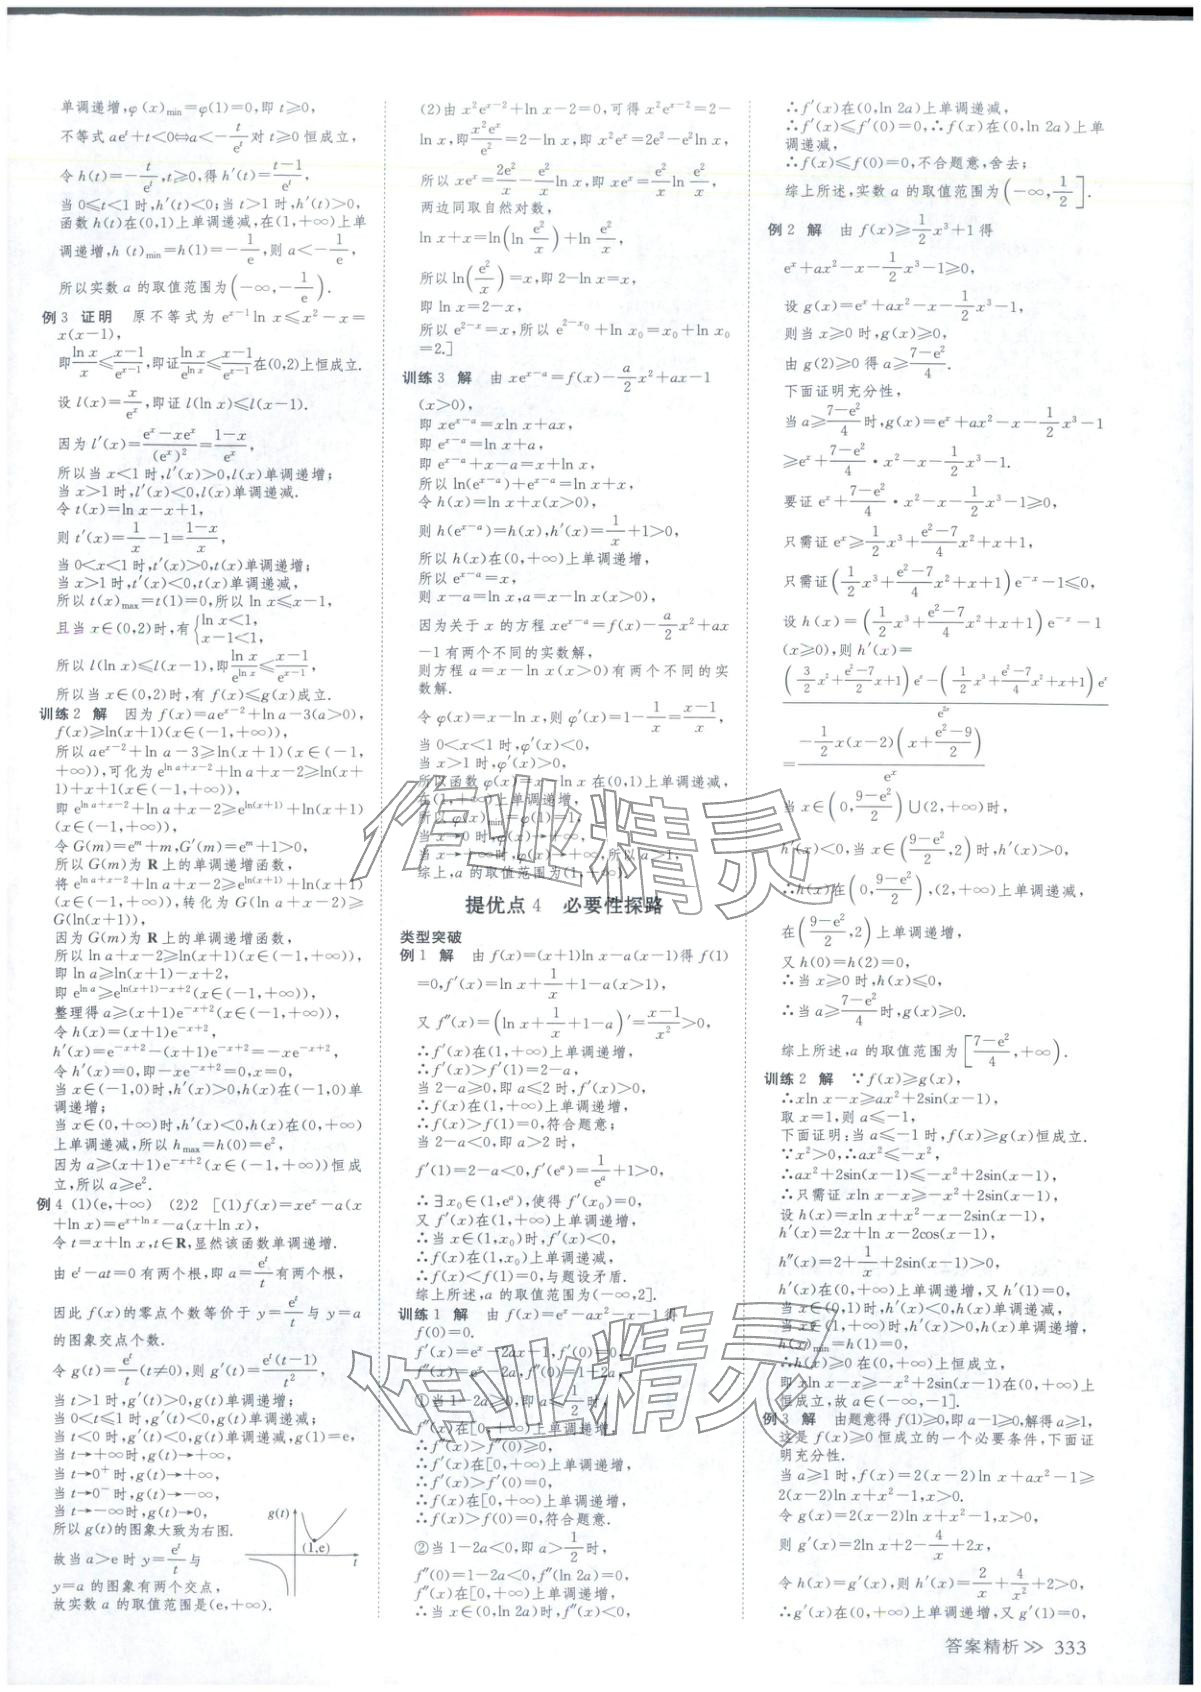 单调递增,φ(x)min=φ(1)=0,即 t≥0,
不等式 aeᵗ+t<0⇔a<-t/eᵗ 对 t≥0 恒成立,
令 h(t)=-t/eᵗ,t≥0,得 h′(t)=(t-1)/eᵗ,
当 0≤t<1 时,h′(t)<0;当 t>1 时,h′(t)>0,
函数 h(t)在(0,1)上单调递减,在(1,+∞)上单
调递增,h(t)min=h(1)=-1/e,则 a<-1/e,
所以实数 a 的取值范围为(-∞,-1/e).
例 3 证明 原不等式为 e^(x-1)ln x≤x²-x=
x(x-1),
即 ln x/x≤(x-1)/e^(x-1),即证 ln x/e^(ln x)≤(x-1)/e^(x-1)在(0,2)上恒成立.
设 l(x)=x/eˣ,即证 l(ln x)≤l(x-1).
因为 l′(x)=(eˣ-xeˣ)/(eˣ)²=(1-x)/eˣ,
所以当 x<1 时,l′(x)>0,l(x)单调递增;
当 x>1 时,l′(x)<0,l(x)单调递减.
令 t(x)=ln x-x+1,
则 t′(x)=1/x-1=(1-x)/x,
当 0<x<1 时,t′(x)>0,t(x)单调递增;
当 x>1 时,t′(x)<0,t(x)单调递减,
所以 t(x)max=t(1)=0,所以 ln x≤x-1,
且当 x∈(0,2)时,有{ln x<1,
x-1<1,
所以 l(ln x)≤l(x-1),即 ln x/e^(ln x)≤(x-1)/e^(x-1),
所以当 x∈(0,2)时,有 f(x)≤g(x)成立.
训练 2 解 因为 f(x)=ae^(x-2)+ln a-3(a>0),
f(x)≥ln(x+1)(x∈(-1,+∞)),
所以 ae^(x-2)+ln a-3≥ln(x+1)(x∈(-1,
+∞)),可化为 e^(ln a+x-2)+ln a+x-2≥ln(x+
1)+x+1(x∈(-1,+∞)),
即 e^(ln a+x-2)+ln a+x-2≥e^(ln(x+1))+ln(x+1)
(x∈(-1,+∞)),
令 G(m)=eᵐ+m,G′(m)=eᵐ+1>0,
所以 G(m)为 R 上的单调递增函数,
将 e^(ln a+x-2)+ln a+x-2≥e^(ln(x+1))+ln(x+1)
(x∈(-1,+∞)),转化为 G(ln a+x-2)≥
G(ln(x+1)),
因为 G(m)为 R 上的单调递增函数,
所以 ln a+x-2≥ln(x+1)(x∈(-1,+∞)),
即 ln a≥ln(x+1)-x+2,
即 e^(ln a)≥e^(ln(x+1)-x+2)(x∈(-1,+∞)),
整理得 a≥(x+1)e^(-x+2)(x∈(-1,+∞)),
令 h(x)=(x+1)e^(-x+2),
h′(x)=e^(-x+2)-(x+1)e^(-x+2)=-xe^(-x+2),
令 h′(x)=0,即-xe^(-x+2)=0,x=0;
当 x∈(-1,0)时,h′(x)>0,h(x)在(-1,0)单
调递增;
当 x∈(0,+∞)时,h′(x)<0,h(x)在(0,+∞)
上单调递减,所以 hmax=h(0)=e²,
因为 a≥(x+1)e^(-x+2)(x∈(-1,+∞))恒成
立,所以 a≥e².
例 4 (1)(e,+∞) (2)2 [(1)f(x)=xeˣ-a(x
+ln x)=e^(x+ln x)-a(x+ln x),
令 t=x+ln x,t∈R,显然该函数单调递增.
由 eᵗ-at=0 有两个根,即 a=eᵗ/t 有两个根,
因此 f(x)的零点个数等价于 y=eᵗ/t 与 y=a
的图象交点个数.
令 g(t)=eᵗ/t(t≠0),则 g′(t)=eᵗ(t-1)/t²,
当 t>1 时,g′(t)>0,g(t)单调递增;
当 0<t<1 时,g′(t)<0,g(t)单调递减;
当 t<0 时,g′(t)<0,g(t)单调递减,g(1)=e,
当 t→+∞时,g(t)→+∞,
当 t→0⁺时,g(t)→+∞,
当 t→0⁻时,g(t)→-∞,
当 t→-∞时,g(t)→0,
所以 g(t)的图象大致为右图.
故当 a>e 时 y=eᵗ/t 与
y=a 的图象有两个交点,
故实数 a 的取值范围是(e,+∞).
g(t)
(1,e)
t
(2)由 x²e^(x-2)+ln x-2=0,可得 x²e^(x-2)=2-
ln x,即 x²eˣ/e²=2-ln x,即 x²eˣ=2e²-e²ln x,
所以 xeˣ=2e²/x-e²/x ln x,即 xeˣ=e²/x ln e²/x,
两边同取自然对数,
ln x+x=ln(ln e²/x)+ln e²/x,
所以 ln(e²/x)=x,即 2-ln x,
即 ln x=2-x,
所以 e^(2-x)=x,所以 e^(2-x₀)+ln x₀=x₀+ln x₀
=2.]
训练 3 解 由 xe^(x-a)=f(x)-a/2x²+ax-1
(x>0),
即 xe^(x-a)=xln x+ax,
即 e^(x-a)=ln x+a,
即 e^(x-a)+x-a=x+ln x,
所以 ln(e^(x-a))+e^(x-a)=ln x+x,
令 h(x)=ln x+x(x>0),
则 h(e^(x-a))=h(x),h′(x)=1/x+1>0,
所以 h(x)在(0,+∞)上单调递增,
所以 e^(x-a)=x,
则 x-a=ln x,a=x-ln x(x>0),
因为关于 x 的方程 xe^(x-a)=f(x)-a/2x²+ax
-1 有两个不同的实数解,
则方程 a=x-ln x(x>0)有两个不同的实
数解.
令 φ(x)=x-ln x,则 φ′(x)=1-1/x=(x-1)/x,
当 0<x<1 时,φ′(x)<0,
当 x>1 时,φ′(x)>0,
所以函数 φ(x)=x-ln x 在(0,1)上单调递减,
在(1,+∞)上单调递增,
所以 φ(x)min=φ(1)=1,
当 x→0 时,φ(x)→+∞,
当 x→+∞时,φ(x)→+∞,所以 a>1,
综上,a 的取值范围为(1,+∞).
提优点 4 必要性探路
类型突破
例 1 解 由 f(x)=(x+1)ln x-a(x-1)得 f(1)
=0,f′(x)=ln x+1/x+1-a(x>1),
又 f″(x)=(ln x+1/x+1-a)′=(x-1)/x²>0,
∴f′(x)在(1,+∞)上单调递增,
∴f′(x)>f′(1)=2-a,
当 2-a≥0,即 a≤2 时,f′(x)>0,
∴f(x)在(1,+∞)上单调递增,
∴f(x)>f(1)=0,符合题意;
当 2-a<0,即 a>2 时,
f′(1)=2-a<0,f′(eᵃ)=1/eᵃ+1>0,
∴∃x₀∈(1,eᵃ),使得 f′(x₀)=0,
又 f′(x)在(1,+∞)上单调递增,
∴当 x∈(1,x₀)时,f′(x)<0,
∴f(x)在(1,x₀)上单调递减,
∴f(x)<f(1)=0,与题设矛盾.
综上所述,a 的取值范围为(-∞,2].
训练 1 解 由 f(x)=eˣ-ax²-x-1 得
f(0)=0.
f′(x)=eˣ-2ax-1,f′(0)=0,
f″(x)=eˣ-2a,f″(0)=1-2a,
①当 1-2a≥0,即 a≤1/2 时,
f″(x)>f″(0)≥0,
∴f′(x)在[0,+∞)上单调递增,
∴f′(x)>f′(0)=0.
∴f(x)在[0,+∞)上单调递增,
∴f(x)>f(0)=0,符合题意.
②当 1-2a<0,即 a>1/2 时,
f″(0)=1-2a<0,f″(ln 2a)=0,
f″(x)在[0,+∞)上单调递增,
∴当 x∈(0,ln 2a)时,f″(x)<0,
∴f′(x)在(0,ln 2a)上单调递减,
∴f′(x)≤f′(0)=0,∴f(x)在(0,ln 2a)上单
调递减,
∴f(x)≤f(0)=0,不合题意,舍去;
综上所述,实数 a 的取值范围为(-∞,1/2].
例 2 解 由 f(x)≥1/2x³+1 得
eˣ+ax²-x-1/2x³-1≥0,
设 g(x)=eˣ+ax²-x-1/2x³-1,
则当 x≥0 时,g(x)≥0,
由 g(2)≥0 得 a≥(7-e²)/4.
下面证明充分性,
当 a≥(7-e²)/4 时,g(x)=eˣ+ax²-x-1/2x³-1
≥eˣ+(7-e²)/4·x²-x-1/2x³-1.
要证 eˣ+(7-e²)/4·x²-x-1/2x³-1≥0,
只需证 eˣ≥1/2x³+(e²-7)/4x²+x+1,
只需证(1/2x³+(e²-7)/4x²+x+1)e⁻ˣ-1≤0,
设 h(x)=(1/2x³+(e²-7)/4x²+x+1)e⁻ˣ-1
(x≥0),则 h′(x)=
((3/2x²+(e²-7)/2x+1)eˣ-(1/2x³+(e²-7)/4x²+x+1)eˣ)/e²ˣ
=(-1/2x(x-2)(x+(e²-9)/2))/eˣ
当 x∈(0,(9-e²)/2)∪(2,+∞)时,
h′(x)<0,当 x∈((9-e²)/2,2)时,h′(x)>0,
∴h(x)在(0,(9-e²)/2),(2,+∞)上单调递减,
在((9-e²)/2,2)上单调递增,
又 h(0)=h(2)=0,
∴当 x≥0 时,h(x)≤0,
∴当 a≥(7-e²)/4 时,g(x)≥0.
综上所述,a 的取值范围为[(7-e²)/4,+∞).
训练 2 解 ∵f(x)≥g(x),
∴xln x-x≥ax²+2sin(x-1),
取 x=1,则 a≤-1,
下面证明:当 a≤-1 时,f(x)≥g(x)恒成立.
∵x²>0,∴ax²≤-x²,
∴ax²+2sin(x-1)≤-x²+2sin(x-1),
∴只需证 xln x-x≥-x²+2sin(x-1),
设 h(x)=xln x+x²-x-2sin(x-1),
h′(x)=2x+ln x-2cos(x-1),
h″(x)=2+1/x+2sin(x-1)>0,
h′(x)在(0,+∞)上单调递增,又 h′(1)=0,
当 x∈(0,1)时,h′(x)<0,h(x)单调递减,
当 x∈(1,+∞)时,h′(x)>0,h(x)单调递增,
h(x)min=h(1)=0,
∴h(x)≥0 在(0,+∞)上恒成立,
即 xln x-x≥-x²-2sin(x-1)在(0,+∞)上
恒成立,故 a∈(-∞,-1].
例 3 解 由题意得 f(1)≥0,即 a-1≥0,解得 a≥1,
这是 f(x)≥0 恒成立的一个必要条件,下面证
明充分性.
当 a≥1 时,f(x)=2(x-2)ln x+ax²-1≥
2(x-2)ln x+x²-1,x>0.
令 g(x)=2(x-2)ln x+x²-1,x>0,
则 g′(x)=2ln x+2-4/x+2x,
令 h(x)=g′(x),则 h′(x)=2/x+4/x²+2>0,
∴g′(x)在(0,+∞)上单调递增,又 g′(1)=0,
答案精析 >> 333
作业精灵
作业精灵